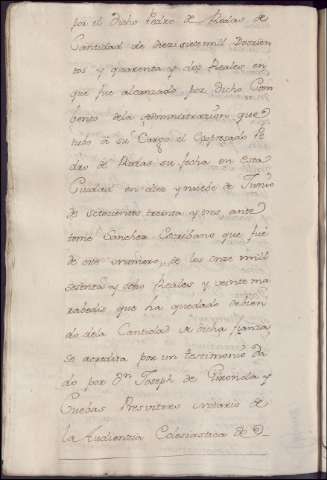 por el dicho Pedro de Rodas de
Cantidad de diez y siete mil Docien
tos y quarenta y dos Reales en
que fue alcanzado por dicho Com
bento de la administracion que
tubo a su Cargo el Expresado Pe
dro de Rodas su fecha en esta
Ciudad en diez y nuebe de Junio
de setecientos treinta y tres ante
tome Sanchez Escribano que fue
de este numero, de los onze mill
setenta y ocho Reales y veinte ma
rabedis que ha quedado debien
do de la Cantidad de dicha fianza
se acredita por un testimonio da
do por Dn Joseph de Gironda y
Cuebas Presvitero notario de
la Audiencia Eclesiastica de